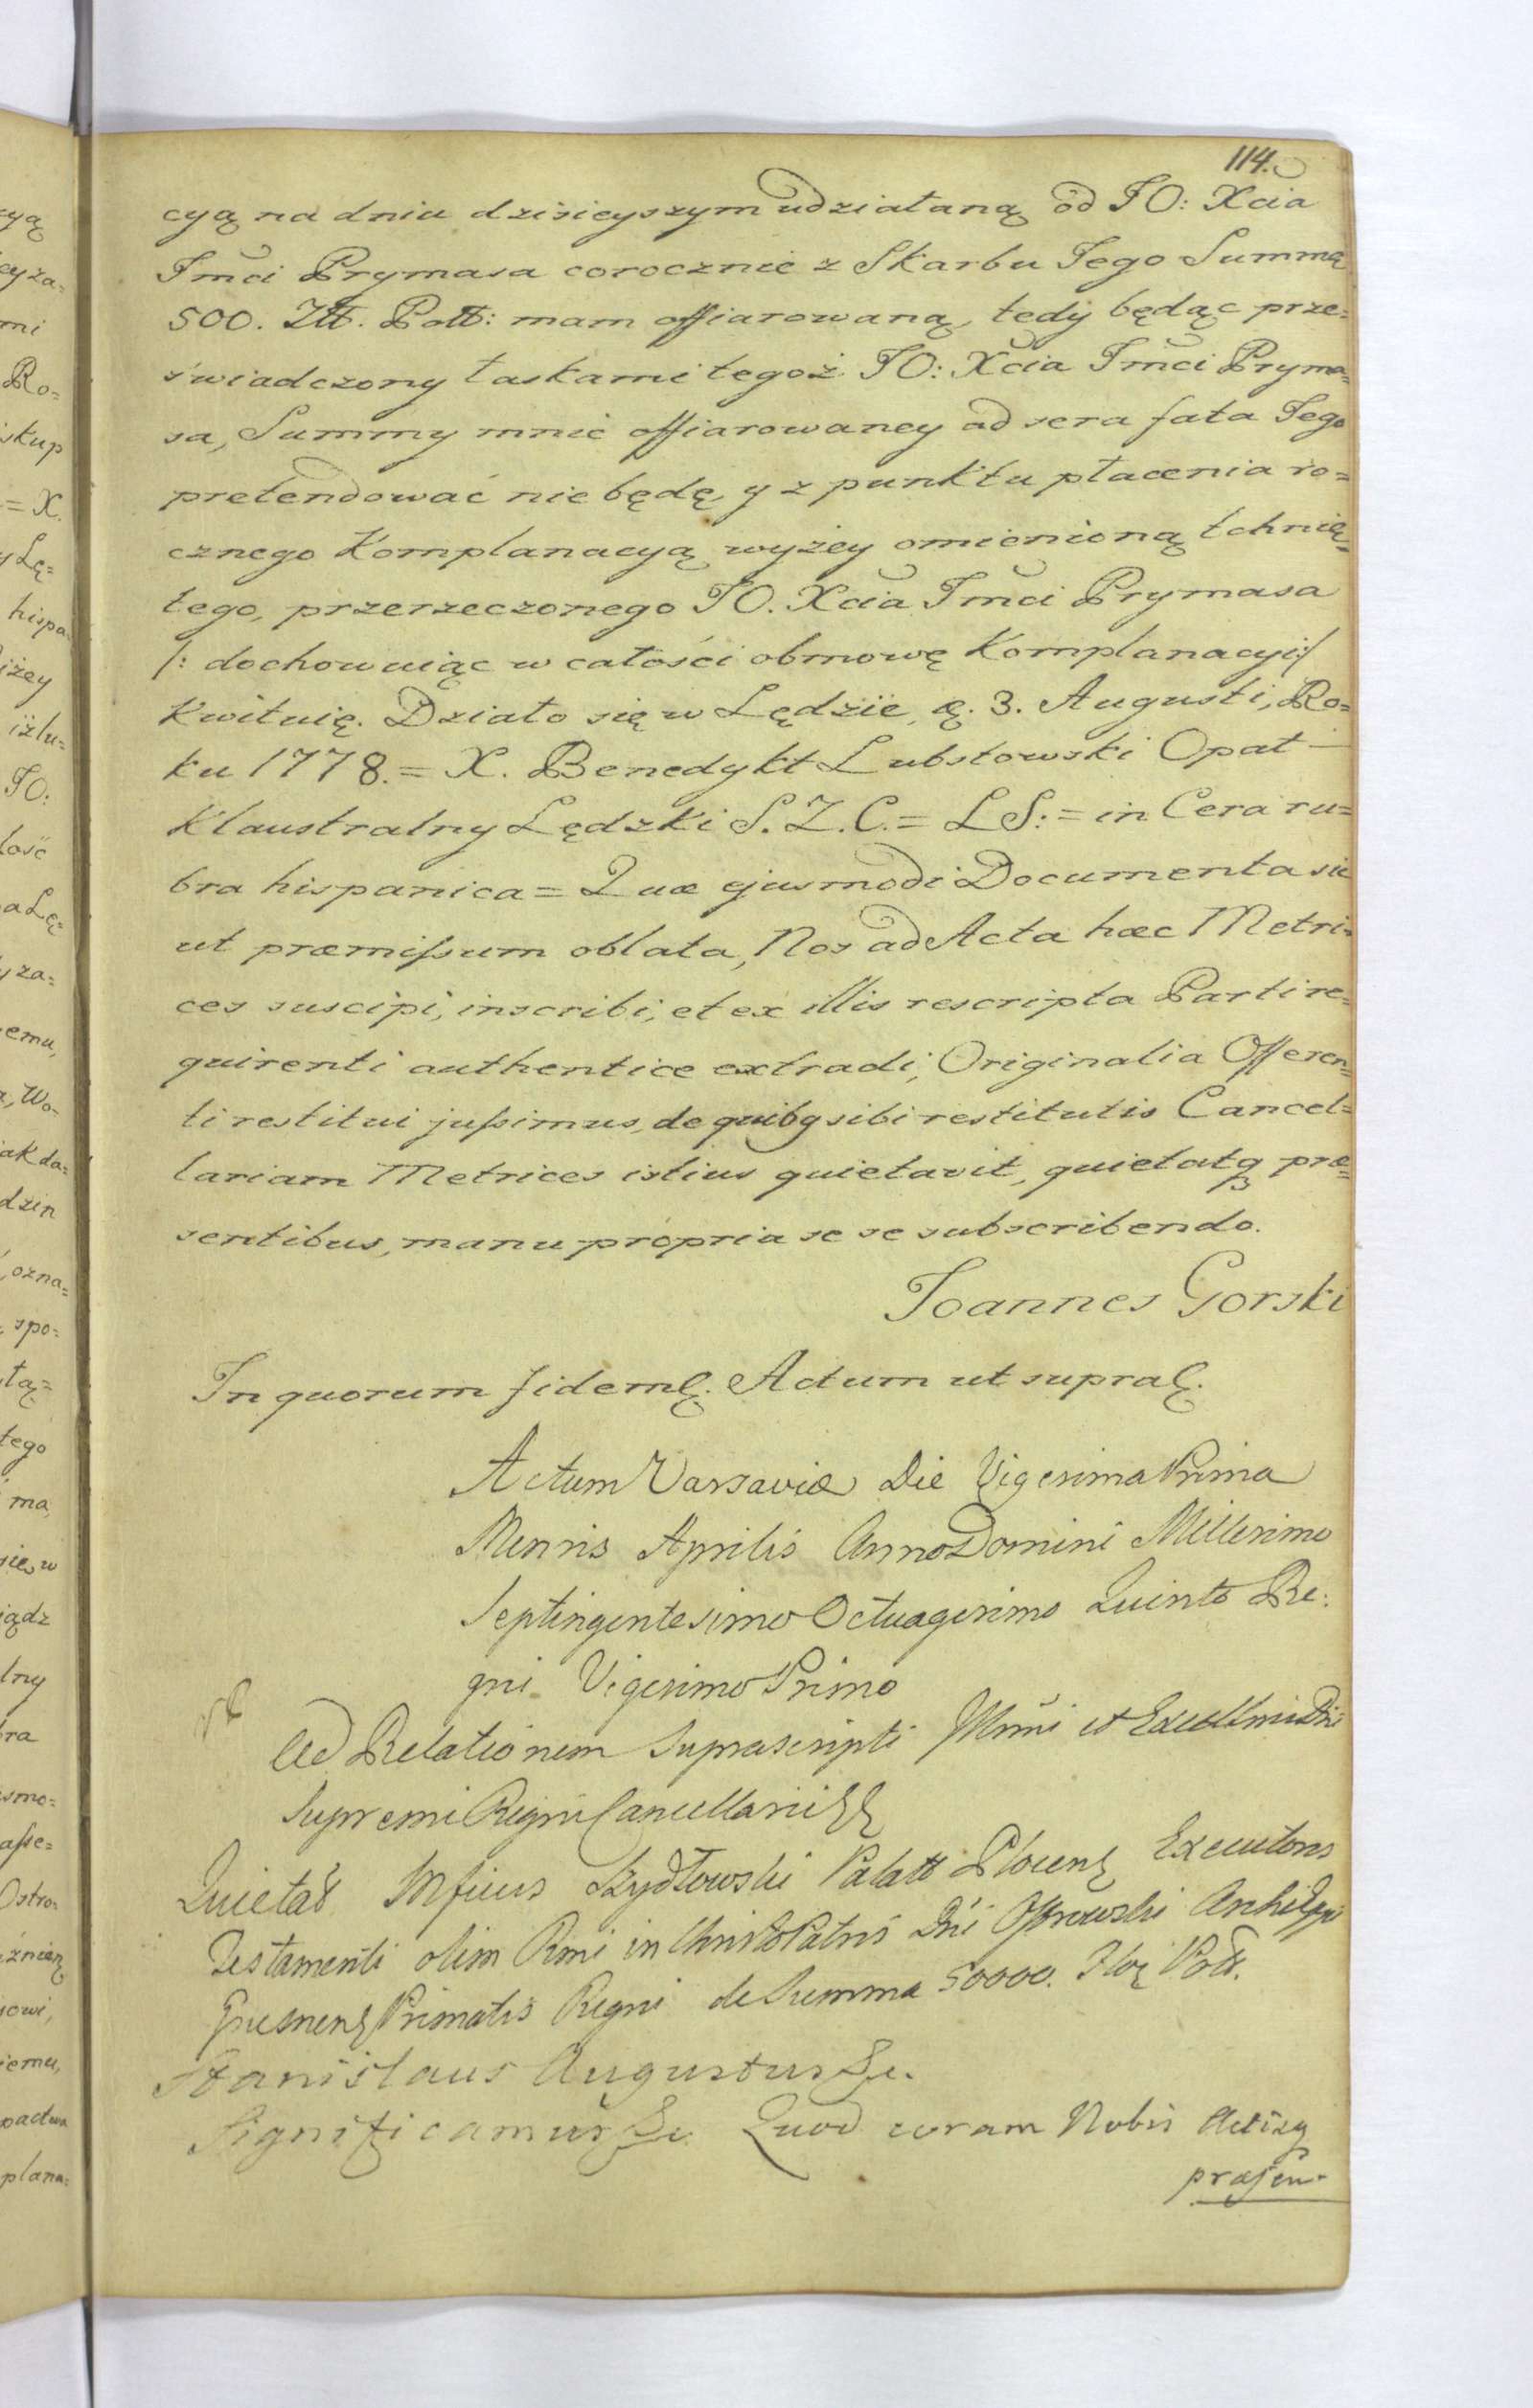 114.
cyą na dniu dzisieyszym udziałaną od JO: Xcia
Jmci Prymasa corocznie z Skarbu Jego Summą
500. Złł. Poll: mam offiarowaną, tedy będąc prze=
świadczony łaskami tegoż JO: Xcia Jmci Pryma=
sa, Summy mnie offiarowaney ad sera fata Jego
pretendować nie będę, y z punktu płacenia ro=
cznego Komplanacyą wyżey omienioną tchnię=
tego, przerzeczonego JO. Xcia Jmci Prymasa
/: dochowuiąc w całości obmowę Komplanacyi:/
Kwituię. Działo się w Lędzie, æ. 3. Augusti, Ro=
ku 1778. = X. Benedykt Lubstowski Opat
Klaustralny Lędzki S. Z. C. = LS: = in Cera ru=
bra hispanica = Quæ ejusmodi Documenta sic
ut præmissum oblata, Nos ad Acta hæc Metri=
ces suscipi, inscribi, et ex illis rescripta Parti re=
quirenti authentice extradi, Originalia Offeren=
ti restitui jussimus, de quibg sibi restitutis Cancel=
lariam Metrices istius quietavit, quietatq præ=
sentibus, manu propria se se subscribendo.
Joannes Gorski
In quorum fidem. Actum ut supra.
Actum Varsaviæ Die Vigesima Prima
Mensis Aprilis Anno Domini Millesimo
Septingentesimo Octuagesimo Quinto Re:
gni Vigesimo Primo
Ad Relationem Suprascripti Illmi et Excellmi Dni
Supremi Regni Cancellarii
Quietat Mficus Szydłowski Palatt Plocens Executores
Testamenti olim Rmi in Christo Patris Dni Ostrowski Archi Eppi
Gnesnens Primatis Regni de Summa 50000. Flor Poll.
Stanislaus Augustus &c.
Significamus &c. Quod coram Nobis Actisq
præsen-